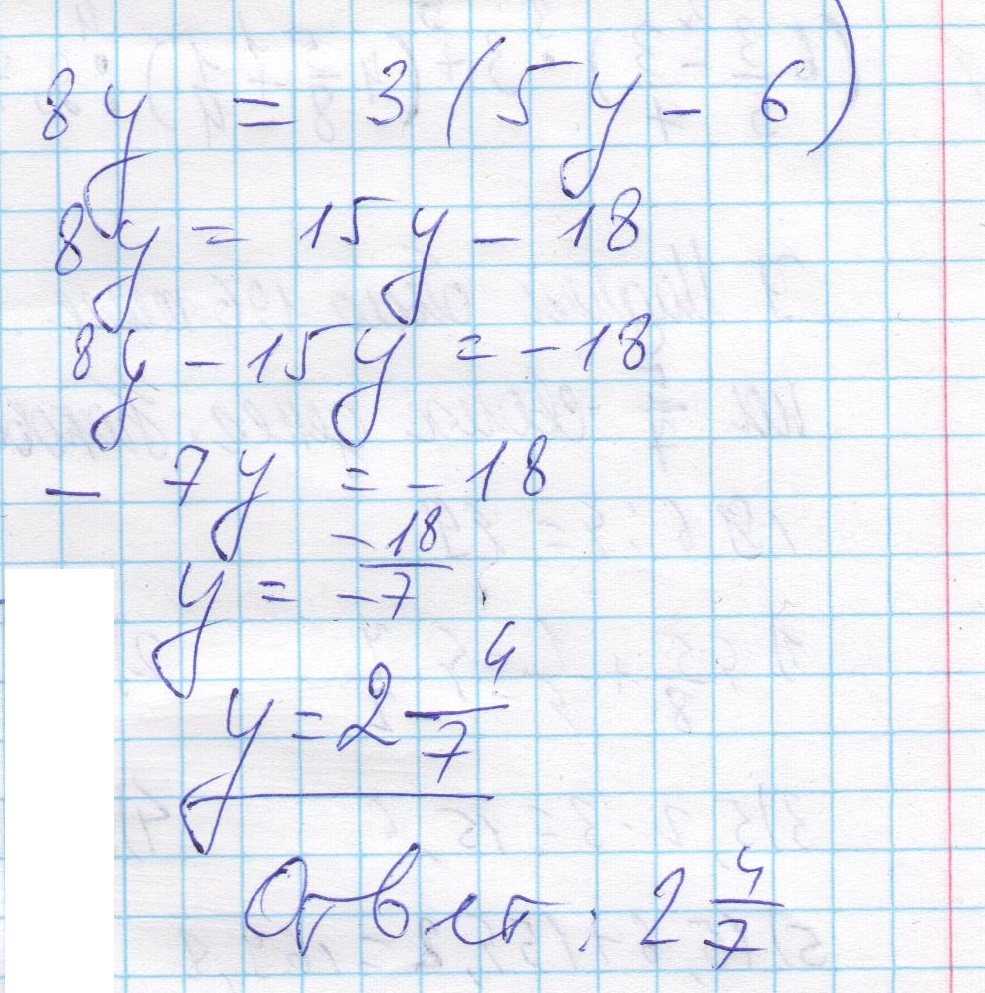 8y = 3(5y - 6)
8y = 15y - 18
8y - 15y = -18
- 7y = -18
y = -18/-7
y = 2 4/7
Ответ: 2 4/7